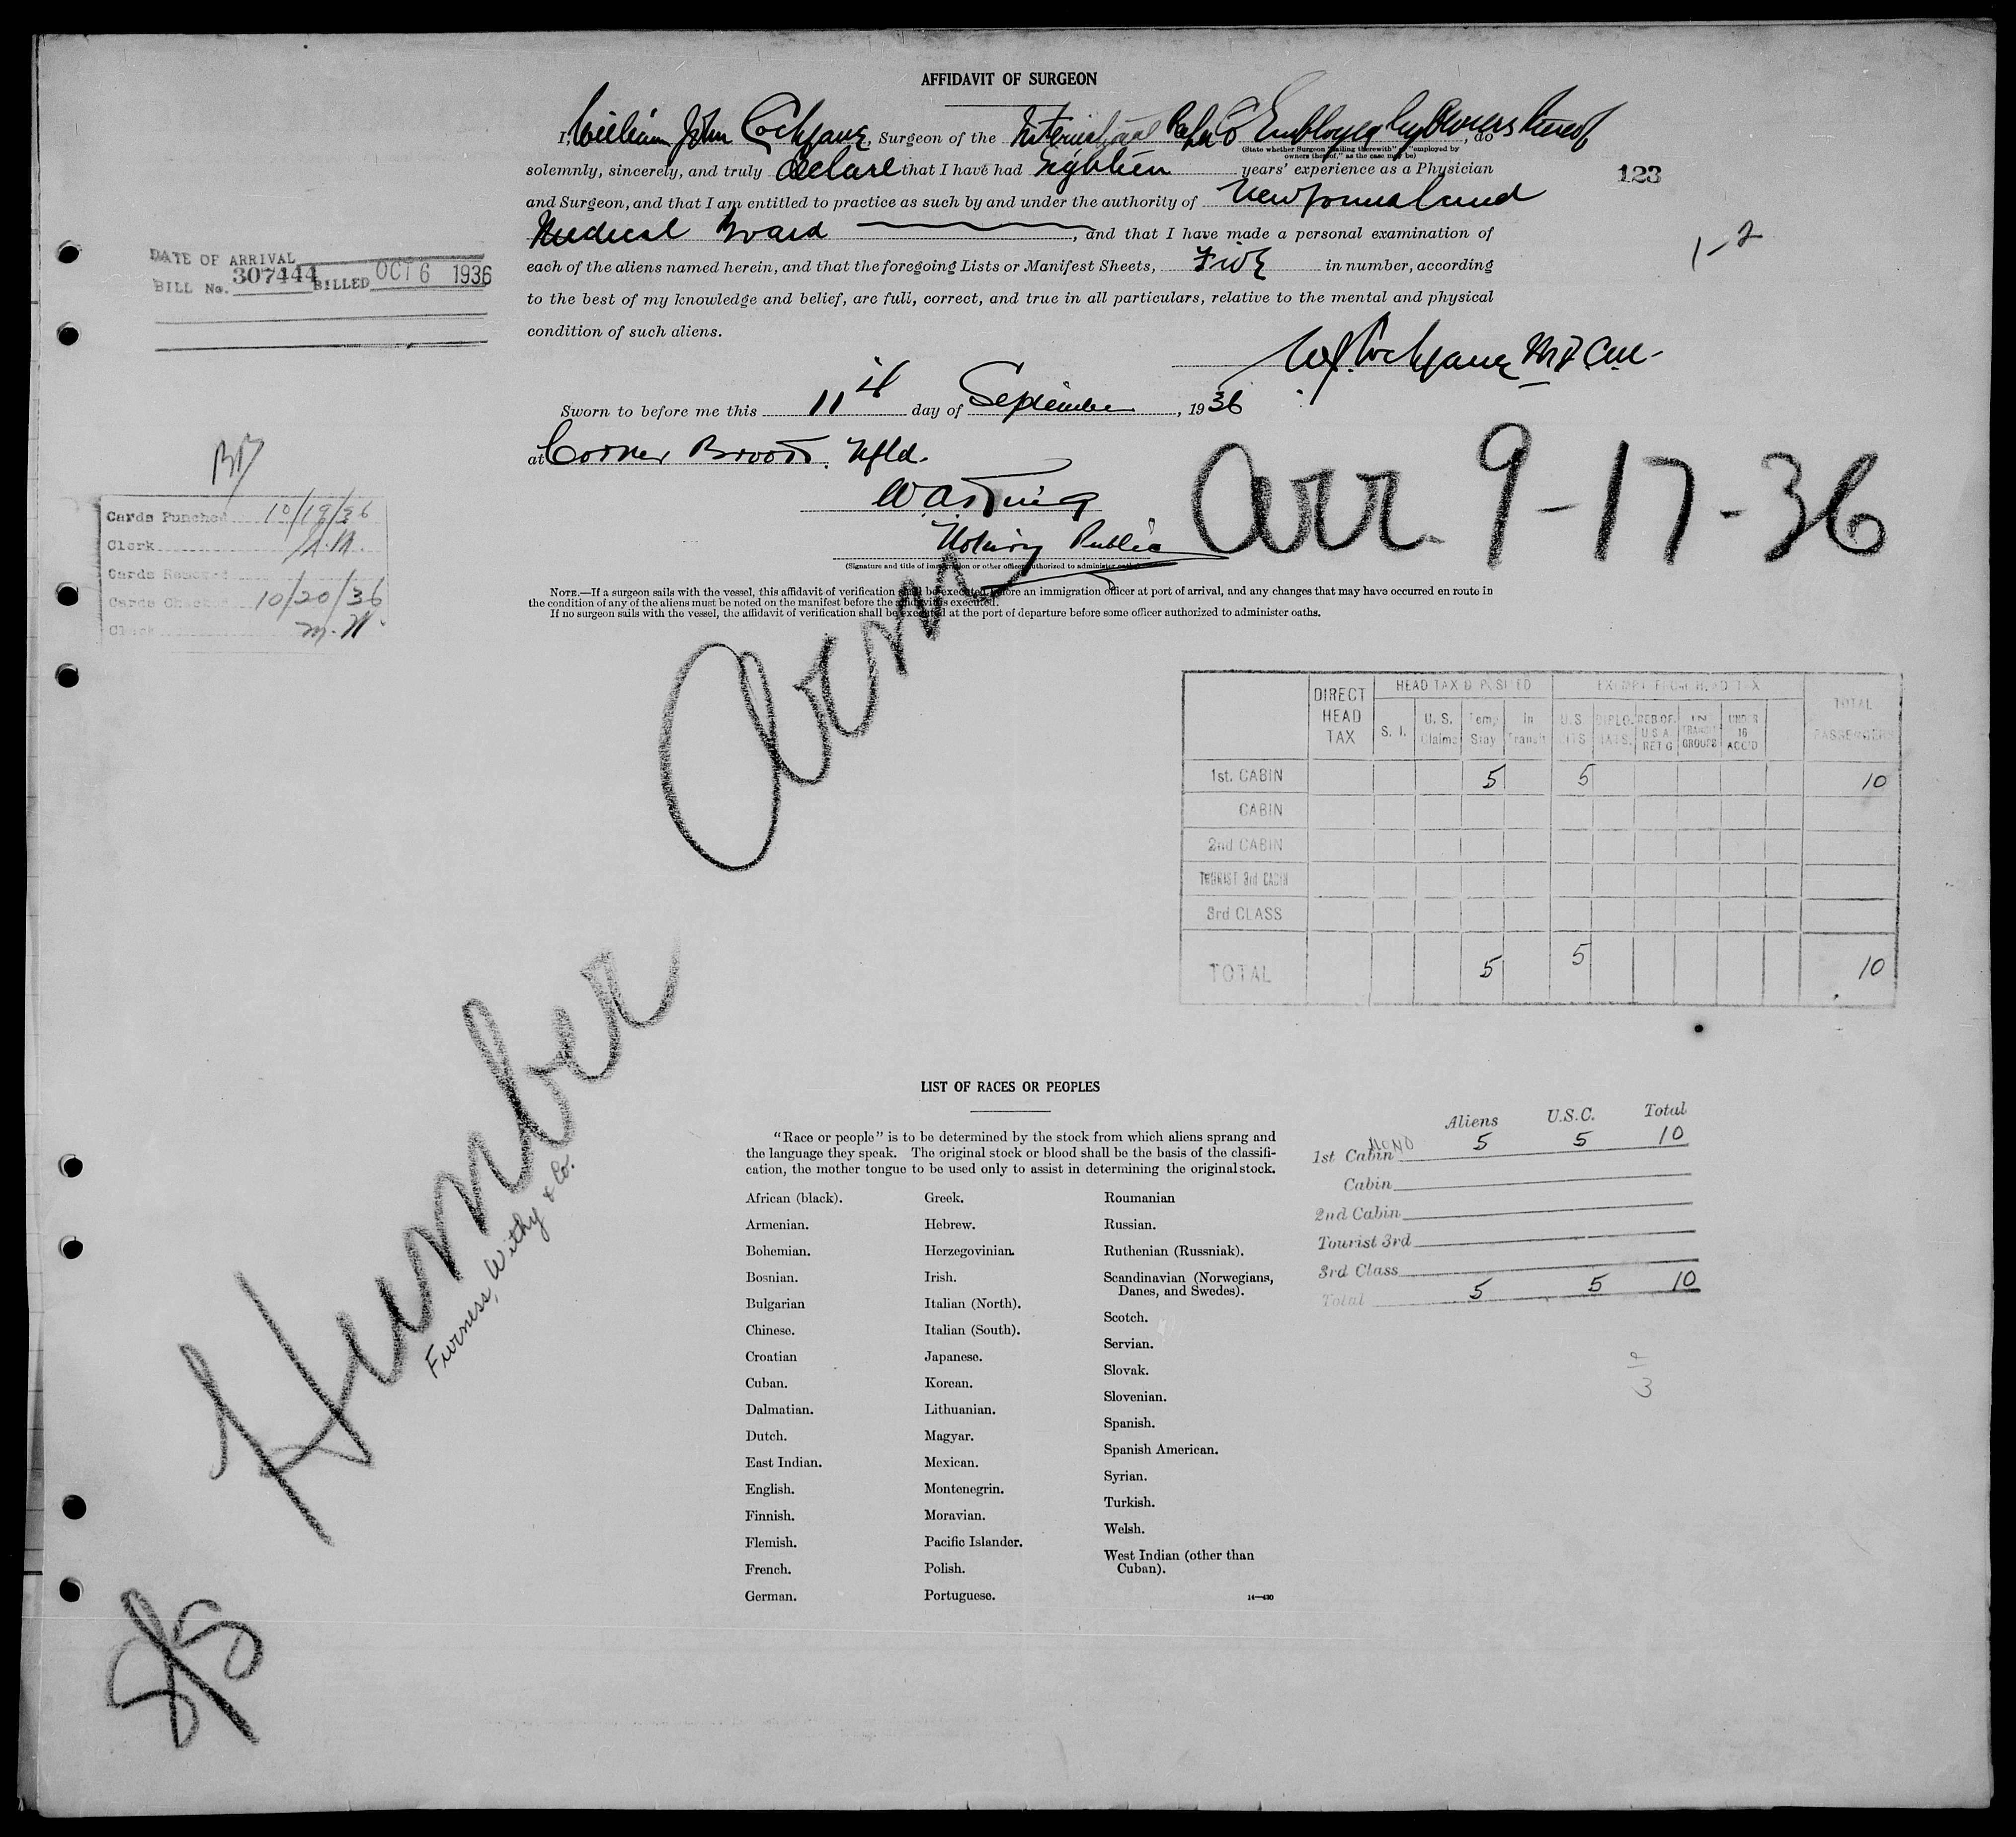 AFFIDAVIT OF SURGEON
I, William John Cochrane, Surgeon of the International Employed by Owners thereof, do
(State whether Surgeon "sailing therewith" or "employed by
owners thereof," as the case may be)
solemnly, sincerely, and truly declare that I have had Eighteen years' experience as a Physician
123
and Surgeon, and that I am entitled to practice as such by and under the authority of Newfoundland
Medical Board, and that I have made a personal examination of
1-2
each of the aliens named herein, and that the foregoing Lists or Manifest Sheets, Five in number, according
to the best of my knowledge and belief, are full, correct, and true in all particulars, relative to the mental and physical
condition of such aliens.
DATE OF ARRIVAL
BILL No. 307444 BILLED OCT 6 1936
W J Cochrane
Sworn to before me this 11th day of September, 1936
at Corner Brook. Nfld.
Notary Public
(Signature and title of immigration or other officer authorized to administer oaths)
Arr. 9-17-36
Cards Punched 10/19/36
Clerk
Cards Removed
Cards Check 10/20/36
Clerk M.N.
NOTE.—If a surgeon sails with the vessel, this affidavit of verification shall be executed before an immigration officer at port of arrival, and any changes that may have occurred en route in
the condition of any of the aliens must be noted on the manifest before the affidavit is executed.
If no surgeon sails with the vessel, the affidavit of verification shall be executed at the port of departure before some officer authorized to administer oaths.
S/S Humber Arm
Furness, Withy & Co.
DIRECT HEAD TAX
HEAD TAX DEPOSITED
EXEMPT FROM HEAD TAX
TOTAL PASSENGERS
S. I.
U. S. Claims
Temp Stay
In Transit
U.S. CITS
DIPLO- MATS.
RES OF U S A RET G
IN TRANSIT GROUPS
UNDER 16 ACC'D
1st. CABIN 5 5 10
CABIN
2nd CABIN
TOURIST 3rd CABIN
3rd CLASS
TOTAL 5 5 10
LIST OF RACES OR PEOPLES
"Race or people" is to be determined by the stock from which aliens sprang and
the language they speak. The original stock or blood shall be the basis of the classifi-
cation, the mother tongue to be used only to assist in determining the original stock.
African (black).
Armenian.
Bohemian.
Bosnian.
Bulgarian
Chinese.
Croatian
Cuban.
Dalmatian.
Dutch.
East Indian.
English.
Finnish.
Flemish.
French.
German.
Greek.
Hebrew.
Herzegovinian.
Irish.
Italian (North).
Italian (South).
Japanese.
Korean.
Lithuanian.
Magyar.
Mexican.
Montenegrin.
Moravian.
Pacific Islander.
Polish.
Portuguese.
Roumanian
Russian.
Ruthenian (Russniak).
Scandinavian (Norwegians,
Danes, and Swedes).
Scotch.
Servian.
Slovak.
Slovenian.
Spanish.
Spanish American.
Syrian.
Turkish.
Welsh.
West Indian (other than
Cuban).
14—430
Aliens U.S.C. Total
1st Cabin 5 5 10
Cabin
2nd Cabin
Tourist 3rd
3rd Class
Total 5 5 10